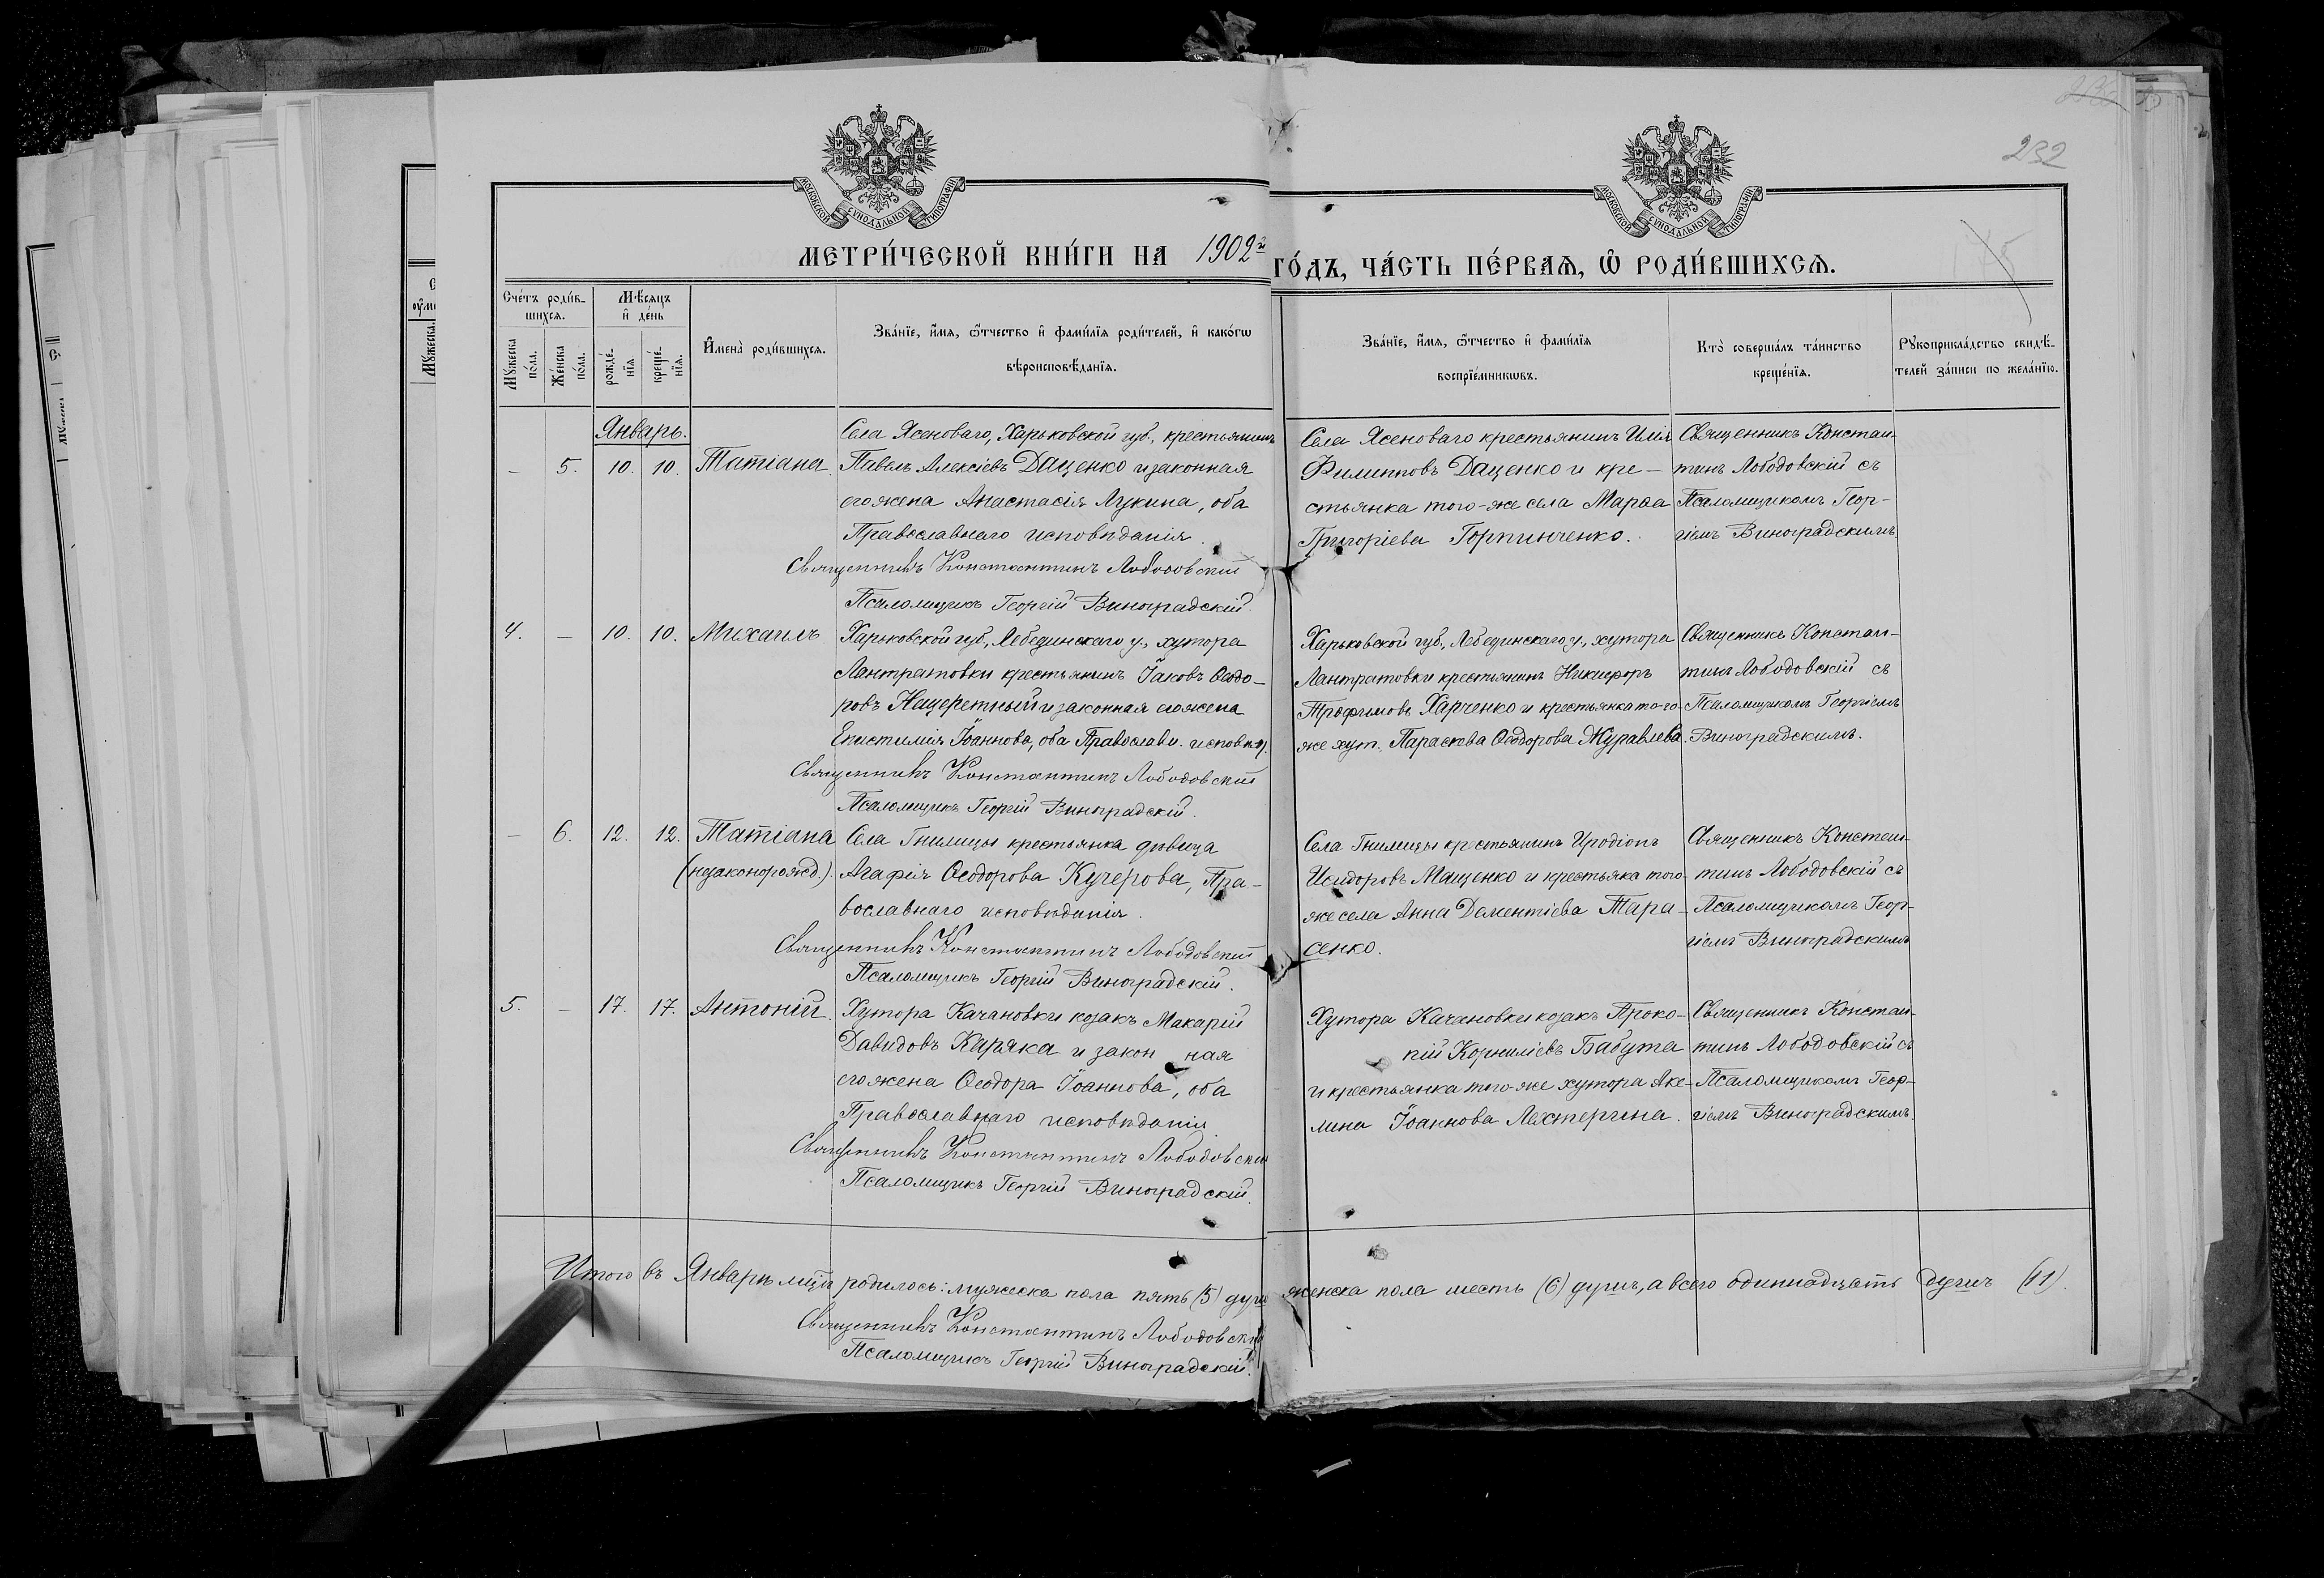 232
МОСКОВСКОЙ СѴНОДАЛЬНОЙ ТИПОГРАФІИ
МОСКОВСКОЙ СѴНОДАЛЬНОЙ ТИПОГРАФІИ
МЕТРИ́ЧЕСКОЙ КНИ́ГИ НА 1902й
ГО́ДЪ, ЧА́СТЬ ПЕ́РВАѦ, Ѽ РОДИ́ВШИХСѦ.
Сче́тъ роди́в-
шихсѧ.
Мꙋ́жеска
по́ла.
Же́нска
по́ла.
Мѣ́сяцъ
и҆ де́нь
рожде́-
нїѧ
креще́-
нїѧ.
И҆мена̀ роди́вшихсѧ.
Зва́нїе, и҆́мѧ, ѻ҆́тчество и҆ фами́лїѧ роди́телей, и҆ како́гѡ
вѣроисповѣ́данїѧ.
Зва́нїе, и҆́мѧ, ѻ҆́тчество и҆ фами́лїѧ
воспрїе́мникѡвъ.
Кто̀ соверша́лъ та́инство
креще́нїѧ.
Рꙋкоприкла́дство свидѣ́-
телей за́писи по жела́нїю.
Январь.
– 5. 10. 10. Татіана
Села Ясеноваго, Харьковской губ., крестьянинъ
Павелъ Алексіевъ Даценко и законная
его жена Анастасія Лукина, оба
Православнаго исповѣданія.
Священникъ Константинъ Лободовскій
Псаломщикъ Георгій Виноградскій.
Села Ясеноваго крестьянинъ Илія
Филипповъ Даценко и кре-
стьянка того-же села Марѳа
Григоріева Горпинченко.
Священникъ Констан-
тинъ Лободовскій съ
Псаломщикомъ Геор-
гіемъ Виноградскимъ.
4. – 10. 10. Михаилъ
Харьковской губ., Лебединскаго у., хутора
Лантратовки крестьянинъ Іаковъ Ѳеодо-
ровъ Нащеретный и законная его жена
Епистимія Іоаннова, оба Православн. исповѣд.
Священникъ Константинъ Лободовскій
Псаломщикъ Георгій Виноградскій.
Харьковской губ., Лебединскаго у., хутора
Лантратовки крестьянинъ Никифоръ
Трофимовъ Харченко и крестьянка то-го-
же хут. Параскева Ѳеодорова Журавлева.
Священникъ Констан-
тинъ Лободовскій съ
Псаломщикомъ Георгіемъ
Виноградскимъ.
– 6. 12. 12. Татіана
(незаконорожд.).
Села Гнилицы крестьянка дѣвица
Агафія Ѳеодорова Кучерова, Пра-
вославнаго исповѣданія.
Священникъ Константинъ Лободовскій
Псаломщикъ Георгій Виноградскій.
Села Гнилицы крестьянинъ Иродіонъ
Исидоровъ Мащенко и крестьяка того-
же села Анна Дементіева Тара-
сенко.
Священникъ Констан-
тинъ Лободовскій съ
Псаломщикомъ Геор-
гіемъ Виноградскимъ
5. – 17. 17. Антоній.
Хутора Качановки козакъ Макарій
Давидовъ Каряка и закон ная
его жена Ѳеодора Іоаннова, оба
Православнаго исповѣданія.
Священникъ Константинъ Лободовскій
Псаломщикъ Георгій Виноградскій.
Хутора Качановки козакъ Проко-
пій Корниліевъ Бабута
и крестьянка того-же хутора Аке-
лина Іоаннова Лехтерина.
Священникъ Констан-
тинъ Лободовскій съ
Псаломщикомъ Геор-
гіемъ Виноградскимъ.
Итого въ Январѣ м-цѣ родилось: мужеска пола пять (5) душ женска пола шесть (6) душъ, а всего одиннадцать душъ (11).
Священникъ Константинъ Лободовскій
Псаломщикъ Георгій Виноградскій.